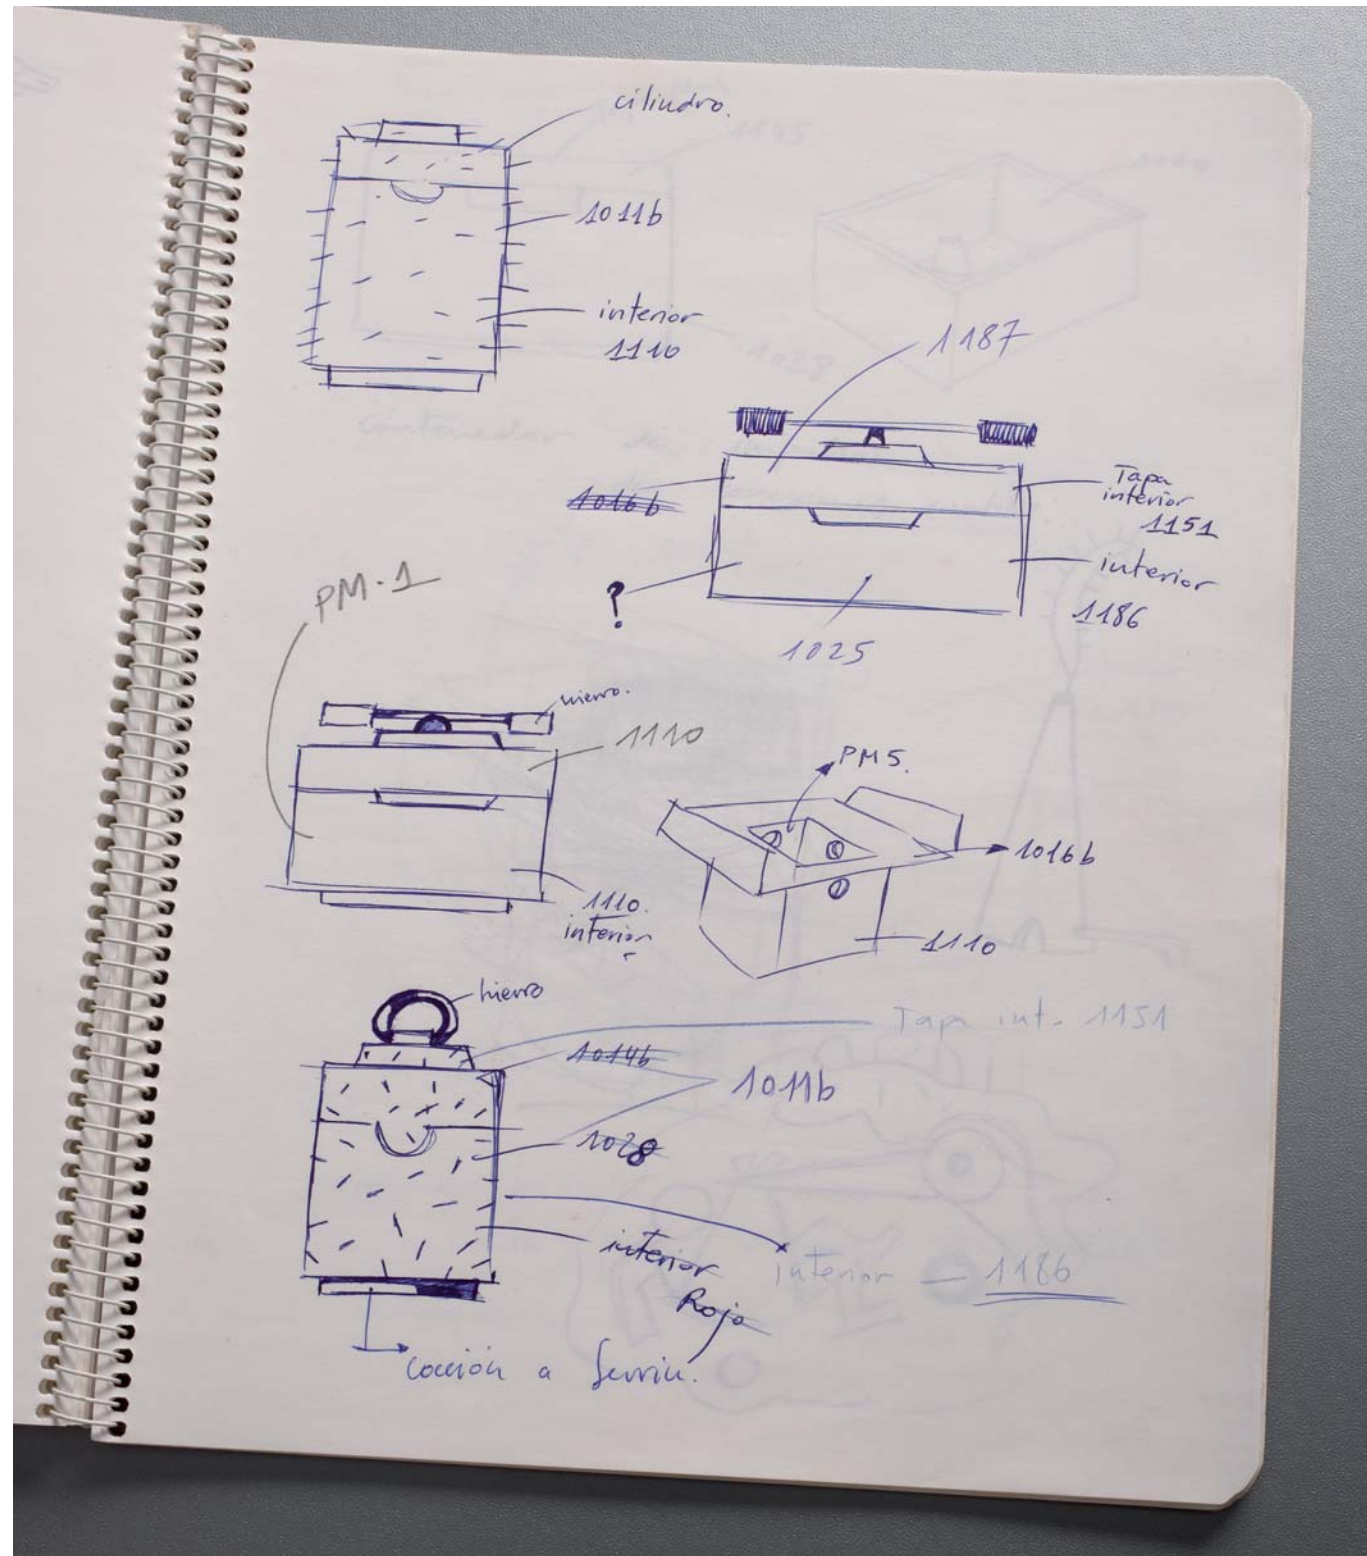 cilindro.
1011b
interior
1110
1187
1016b
Tapa
interior
1151
interior
1186
?
1025
PM-1
hierro.
1110
1110.
interior
PM5.
1016b
1110
hierro
Tapa int. 1151
1014b
1011b
1028
interior
Rojo
interior — 1186
cocción a